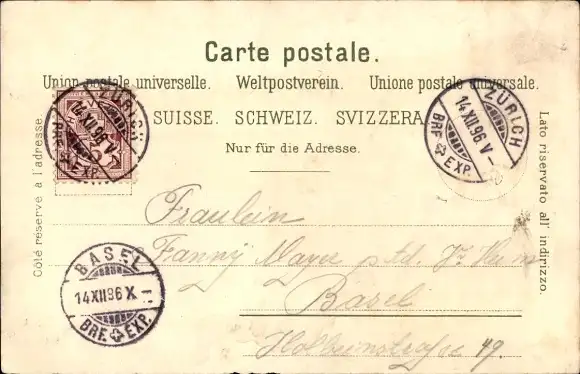 Carte postale.
Union postale universelle. Weltpostverein. Unione postale universale.
SUISSE. SCHWEIZ. SVIZZERA
Nur für die Adresse.
Côté réservé à l'adresse.
Lato riservato all' indirizzo.
ZÜRICH
14 XII.96 V-
BRF. EXP.
ZÜRICH
14 XII.96 V-
BRF. EXP.
BASEL
14 XII 96 X-
BRF. EXP.
Fräulein
Fanny Mayer
Basel
Holbeinstrasse 49.